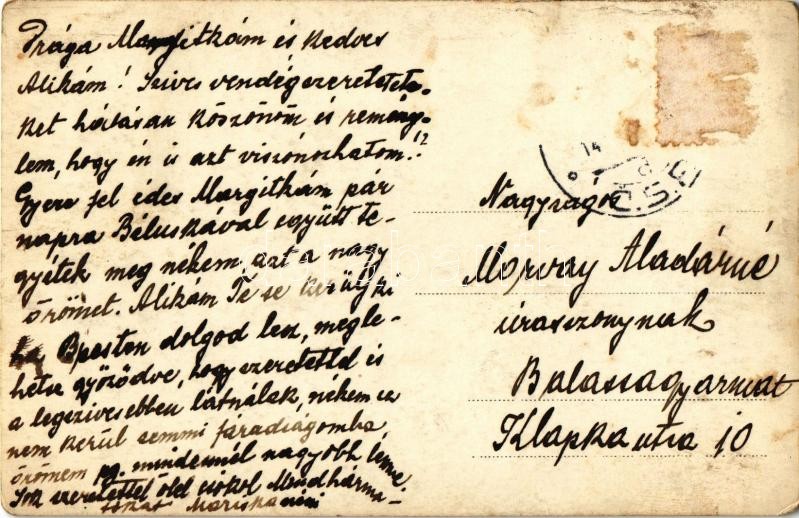 Drága Margitkám és Kedves
Alikám! Szives vendégszeretetete-
ket hálásan köszönöm és remény-
lem, hogy én is azt viszonozhatom!?
Gyere fel édes Margitkám pár
napra Béluskával együtt te-
gyétek meg nékem azt a nagy
örömet. Alikám Te se kerülj ki
ha Bpesten dolgod lesz, megle-
hetsz győződve, hogy szeretettel és
a legszivesebben látnálak, nékem ez
nem kerül semmi fáradságomba
örömem pg. mindennél nagyobb lenne
Sok szeretettel ölel csókol Mindhárma-
tokat Mariska néni
14
Nagyságos
Morvay Aladárné
úrasszonynak
Balassagyarmat
Klapka utca 10